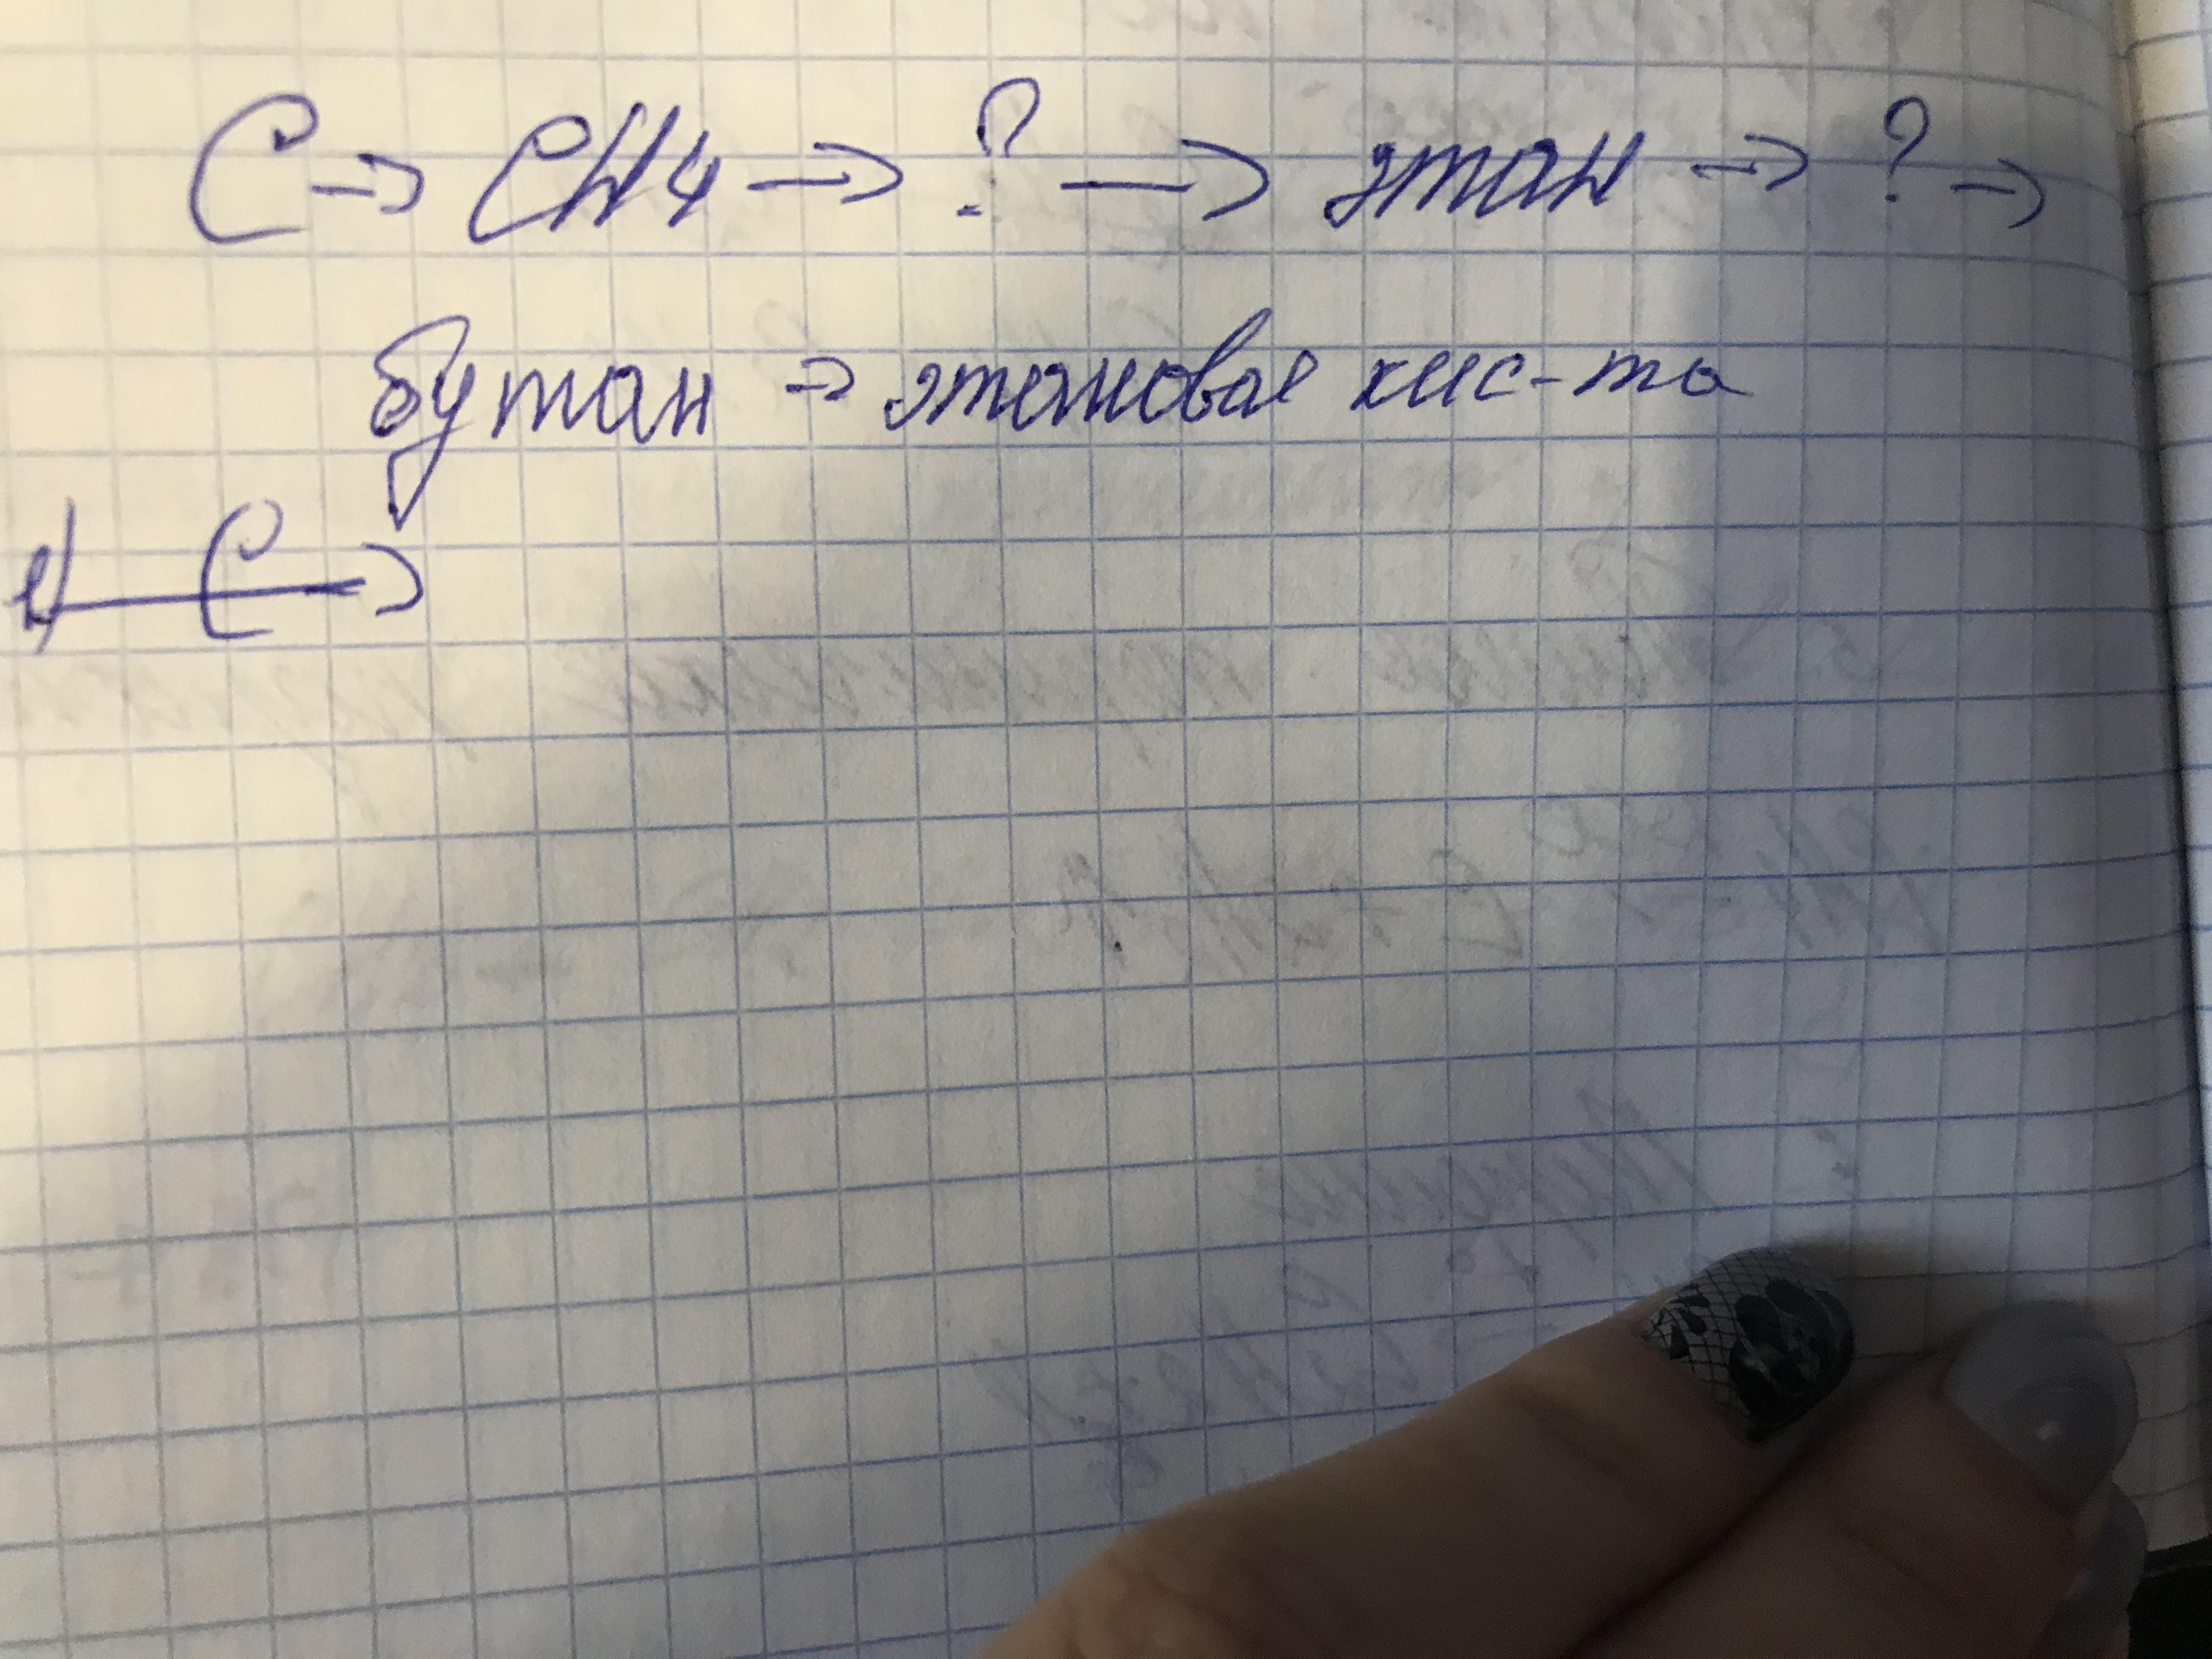 C → CH4 → ? → этан → ? →
бутан → этановая кис-та
1) C →